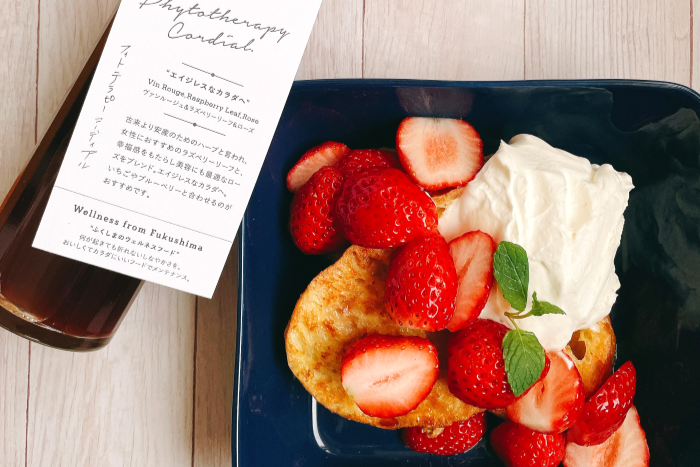 Phytotherapy
Cordial.
フィトテラピーコーディアル
"エイジレスなカラダへ"
Vin Rouge,Raspberry Leaf,Rose
ヴァンルージュ&ラズベリーリーフ&ローズ
古来より安産のためのハーブと言われ、
女性におすすめのラズベリーリーフと、
幸福感をもたらし美容にも最適なロー
ズをブレンド。エイジレスなカラダへ。
いちごやブルーベリーと合わせるのが
おすすめです。
Wellness from Fukushima
"ふくしまのウェルネスフード"
何が起きても折れないしなやかさを。
おいしくてカラダにいいフードでメンテナンス。